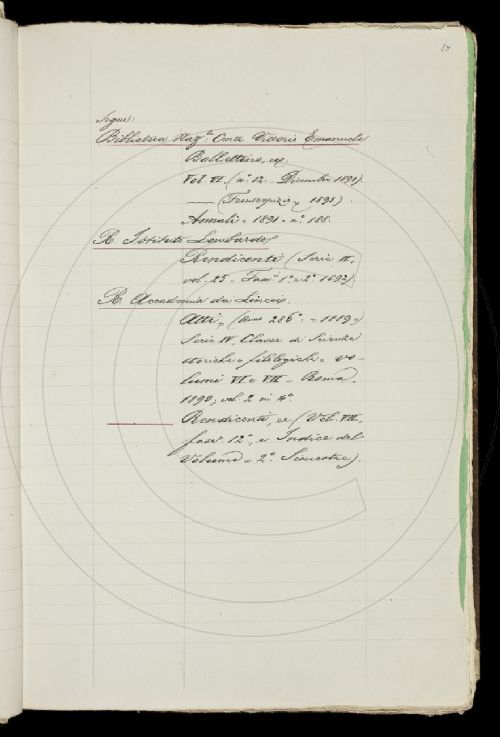 37
Segue:
Biblioteca Naz.e Cent. Vittorio Emanuele
Bollettino, ec.
Vol. VI. (n.º 12. Dicembre 1891)
— (Frontespizio, 1891).
Annali - 1891 - n.º 188.
R. Istituto Lombardo
Rendiconti (Serie II.
vol. 25 - Fasc. 1.º e 2.º 1892)
R. Accademia dei Lincei.
Atti, (Anno 286.º - 1889 -)
Serie IV. Classe di Scienze
storiche e filologiche - vo-
lumi VI e VII - Roma,
1890, vol. 2 in 4.º
Rendiconti, ec (Vol. VII,
fasc. 12.º, e Indice del
Volume - 2.º Semestre).